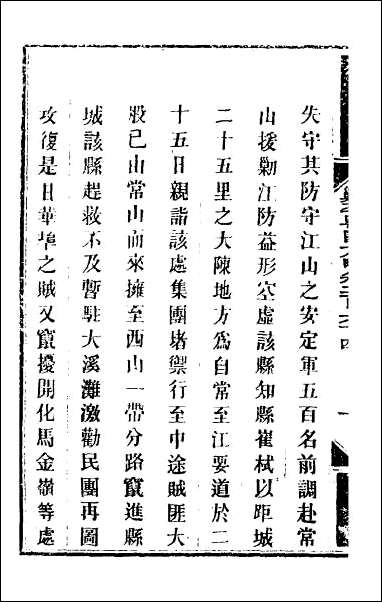 失守其防守江山之安定軍五百名前調赴常
山援勦江防益形空虛該縣知縣崔栻以距城
二十五里之大陳地方爲自常至江要道於二
十五日親詣該處集團堵禦行至中途賊匪大
股已由常山而來擁至西山一帶分路竄進縣
城該縣趕救不及暫駐大溪灘激勸民團再圖
攻復是日華埠之賊又竄擾開化馬金嶺等處